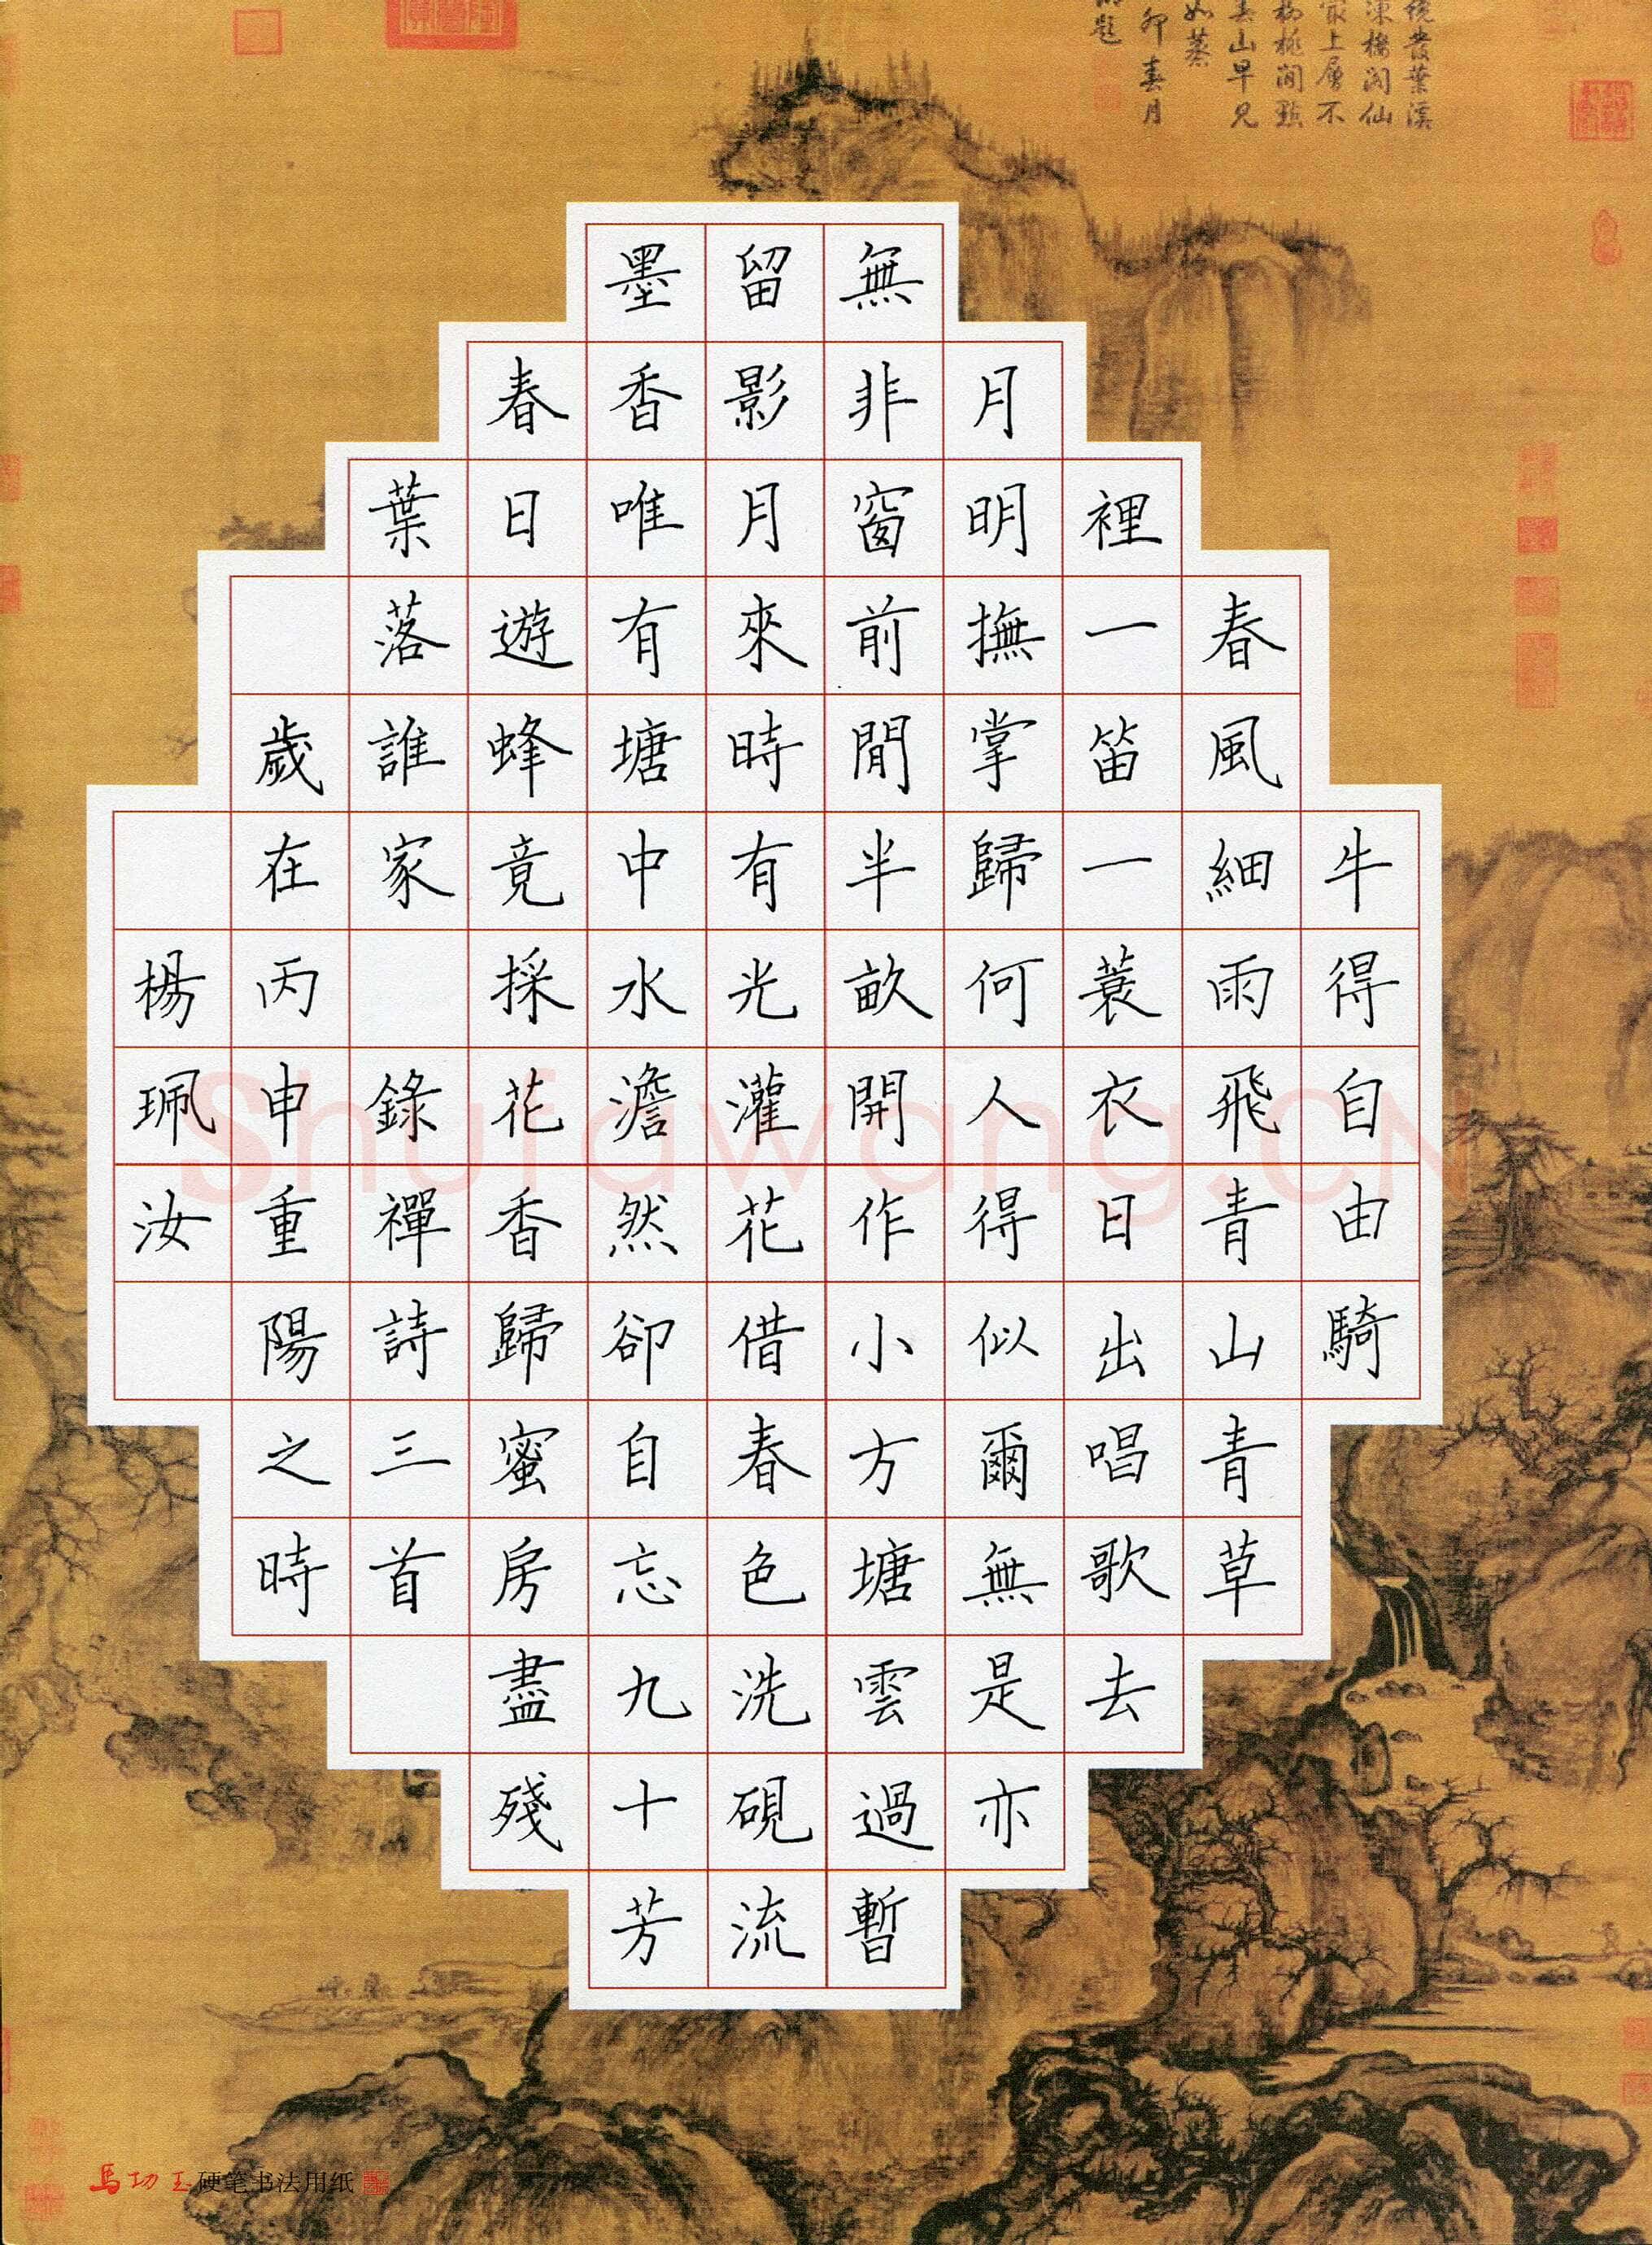 發葉溪
凍樓閣仙
上層不
柳桃閒點
春山早見
如蒸
卯春月
題
牛得自由騎
春風細雨飛青山青草
裡一笛一蓑衣日出唱歌去
月明撫掌歸何人得似爾無是亦
無非窗前閒半畝開作小方塘雲過暫
留影月來時有光灌花借春色洗硯流
墨香唯有塘中水澹然卻自忘九十芳
春日遊蜂竟採花香歸蜜房盡殘
葉落誰家 錄禪詩三首
歲在丙申重陽之時
楊珮汝
Shufawang.CN
硬笔书法用纸